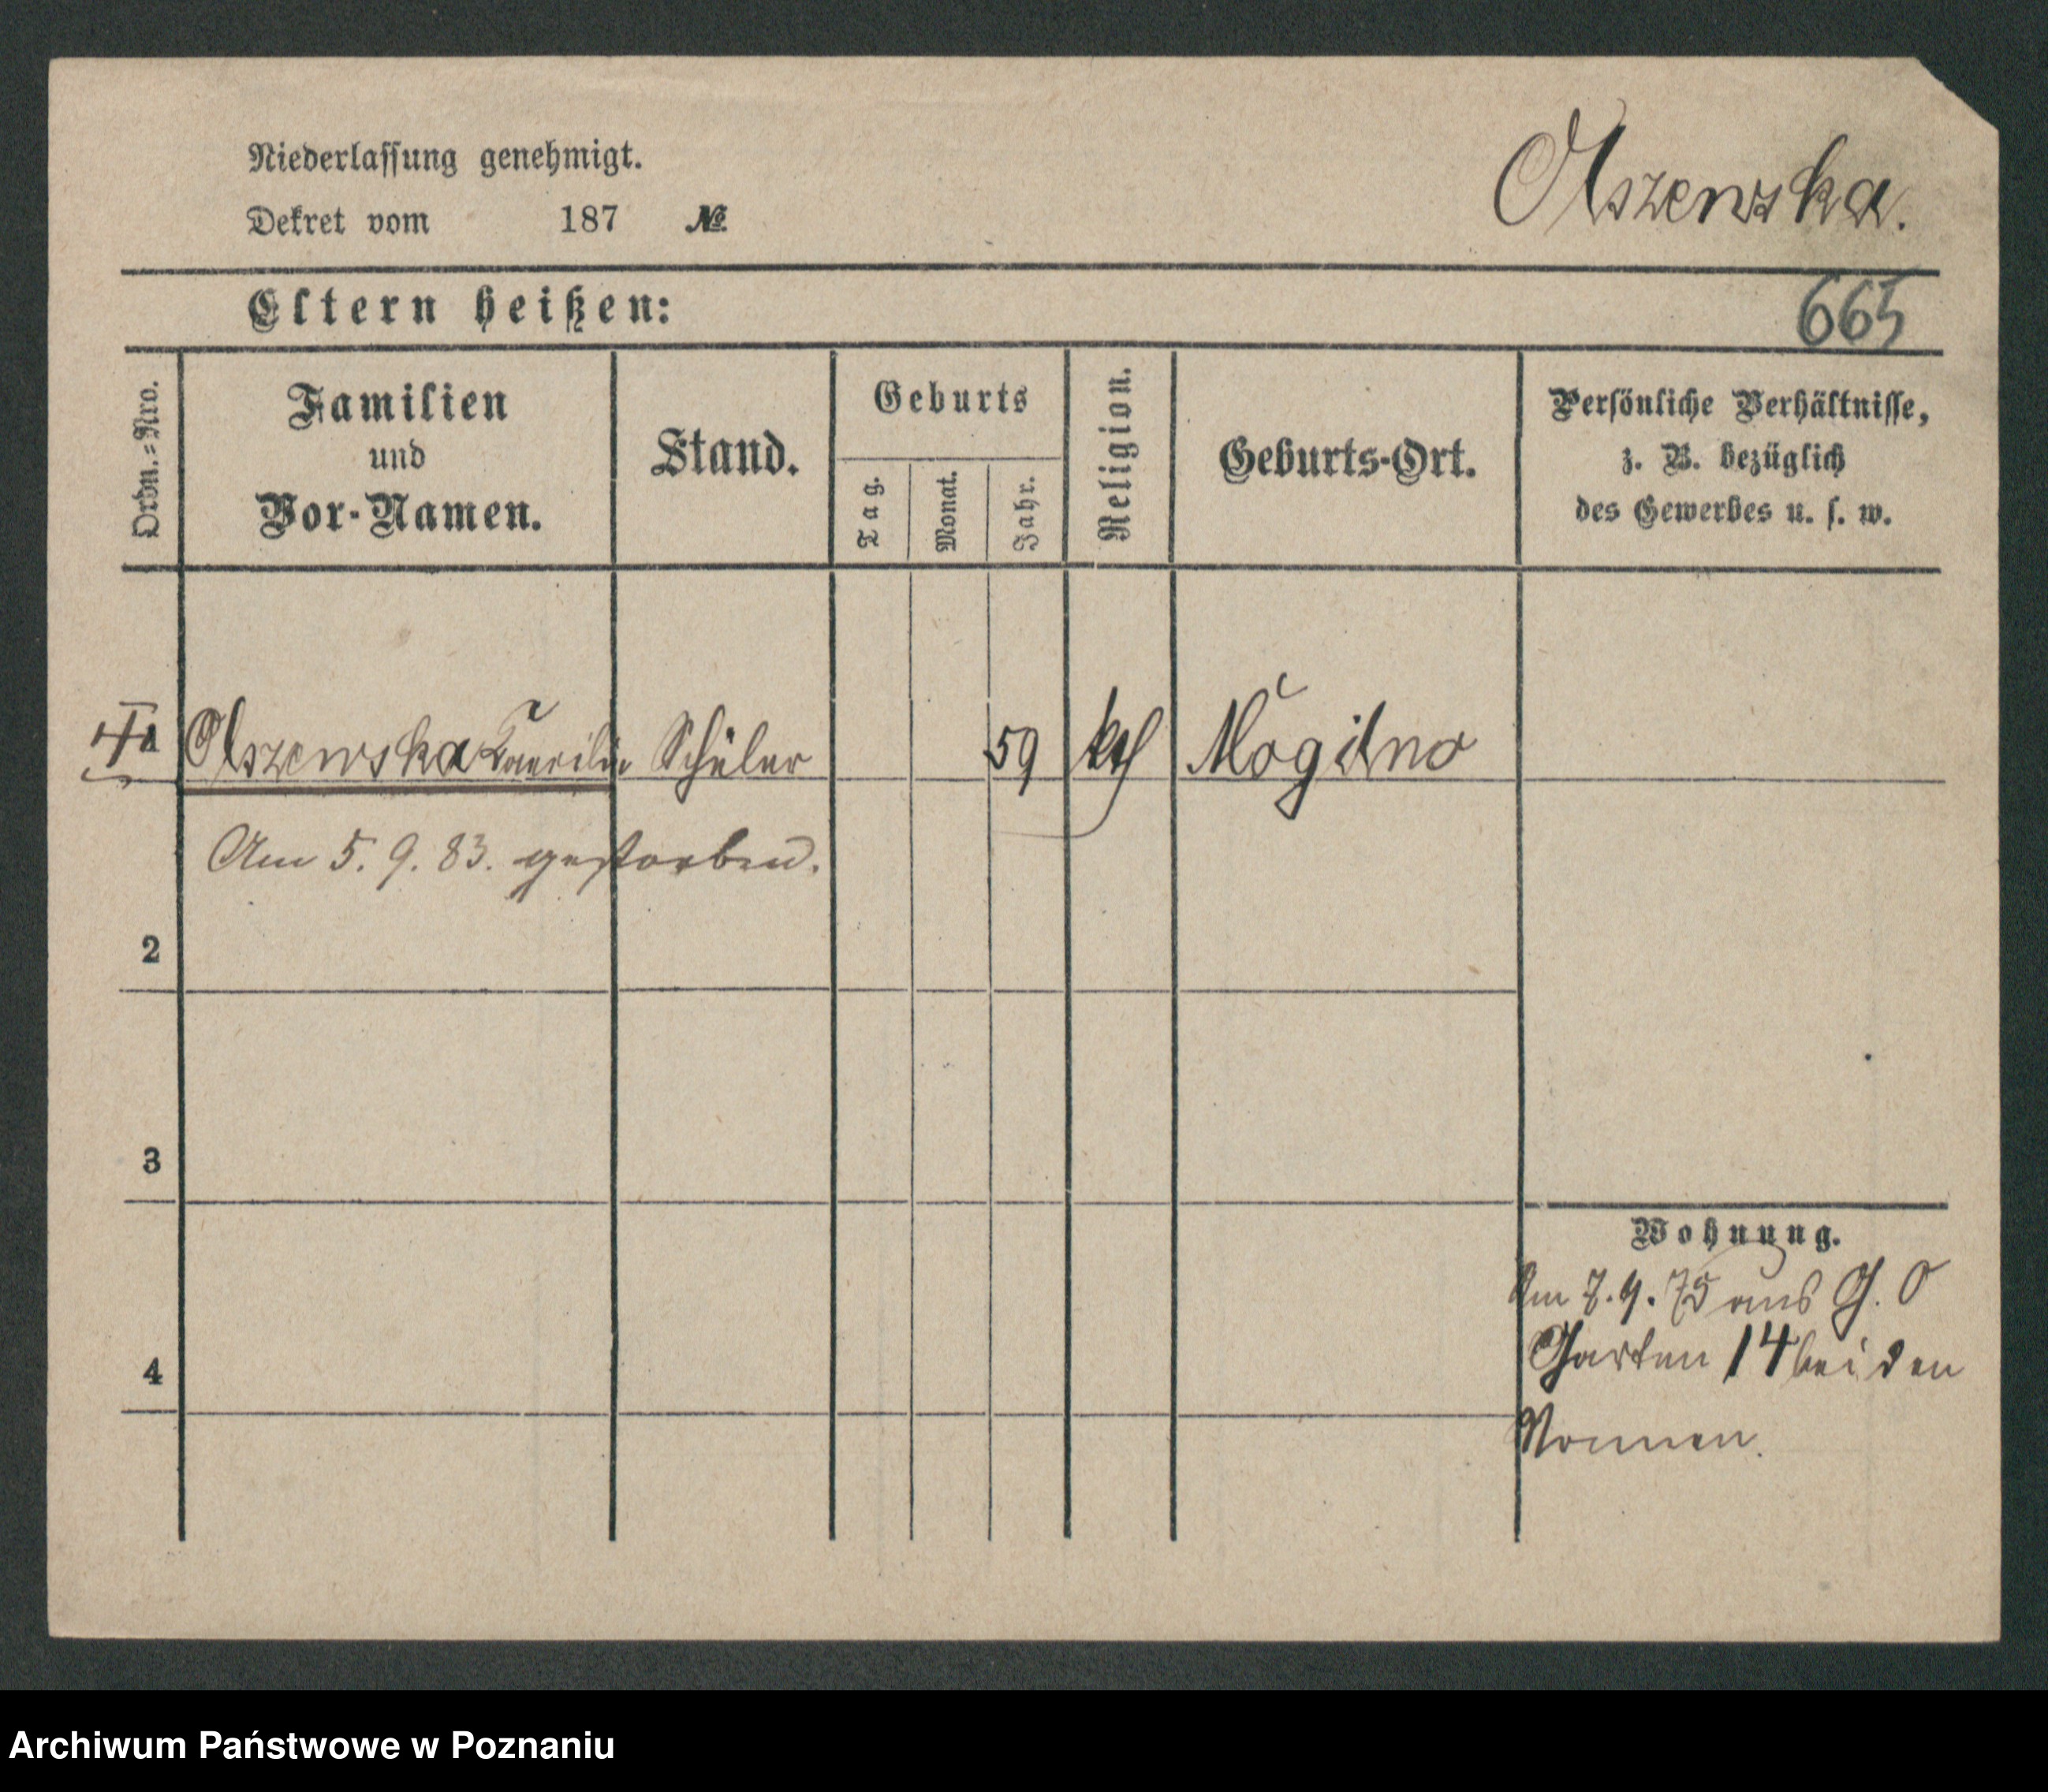 Niederlassung genehmigt.
Dekret vom 187 №
Olszewska.
Eltern heißen:
665
Ordn.-Nro.
Familien
und
Vor-Namen.
Stand.
Geburts
Tag.
Monat.
Jahr.
Religion.
Geburts-Ort.
Persönliche Verhältnisse,
z. B. bezüglich
des Gewerbes u. s. w.
1 Olszewska Schüler 59 kth Mogilno
Am 5. 9. 83. gestorben.
2
3
4
Wohnung.
Am 7. 4. 75 aus G. O
Garten 14 bei den
Nonnen.
Archiwum Państwowe w Poznaniu